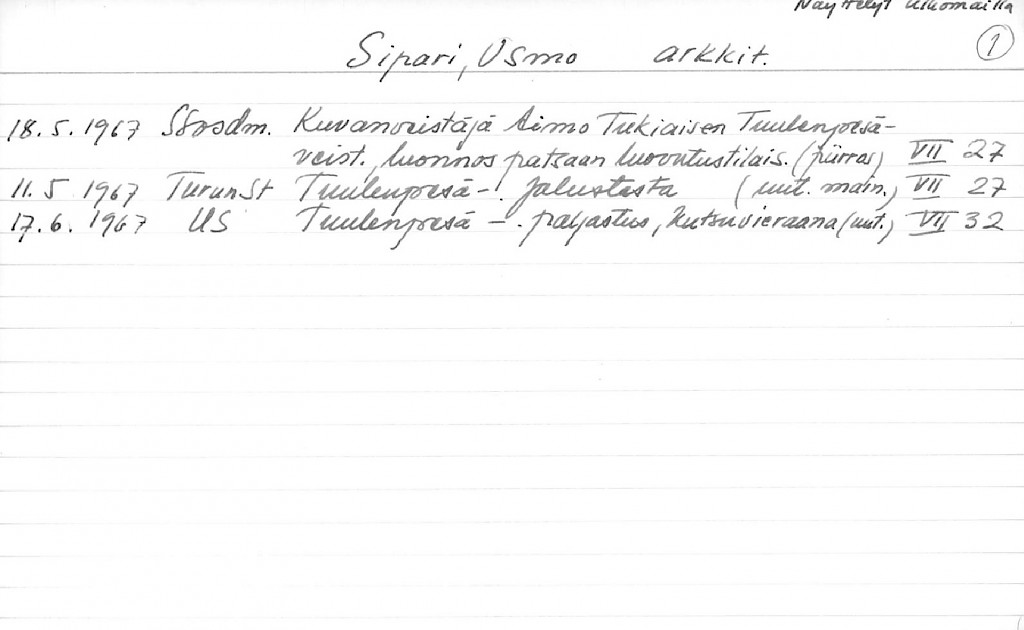 Näyttelyt ulkomailla
1
Sipari, Osmo arkkit.
18.5.1967 SSosdm. Kuvanveistäjä Aimo Tukiaisen Tuulenpesä-
veist., luonnos patsaan luovutustilais. (piirros) VII 27
11.5 1967 TurunSt Tuulenpesä-. jalustasta (uut. main.) VII 27
17.6. 1967 US Tuulenpesä -. paljastus, kutsuvieraana (uut.) VII 32